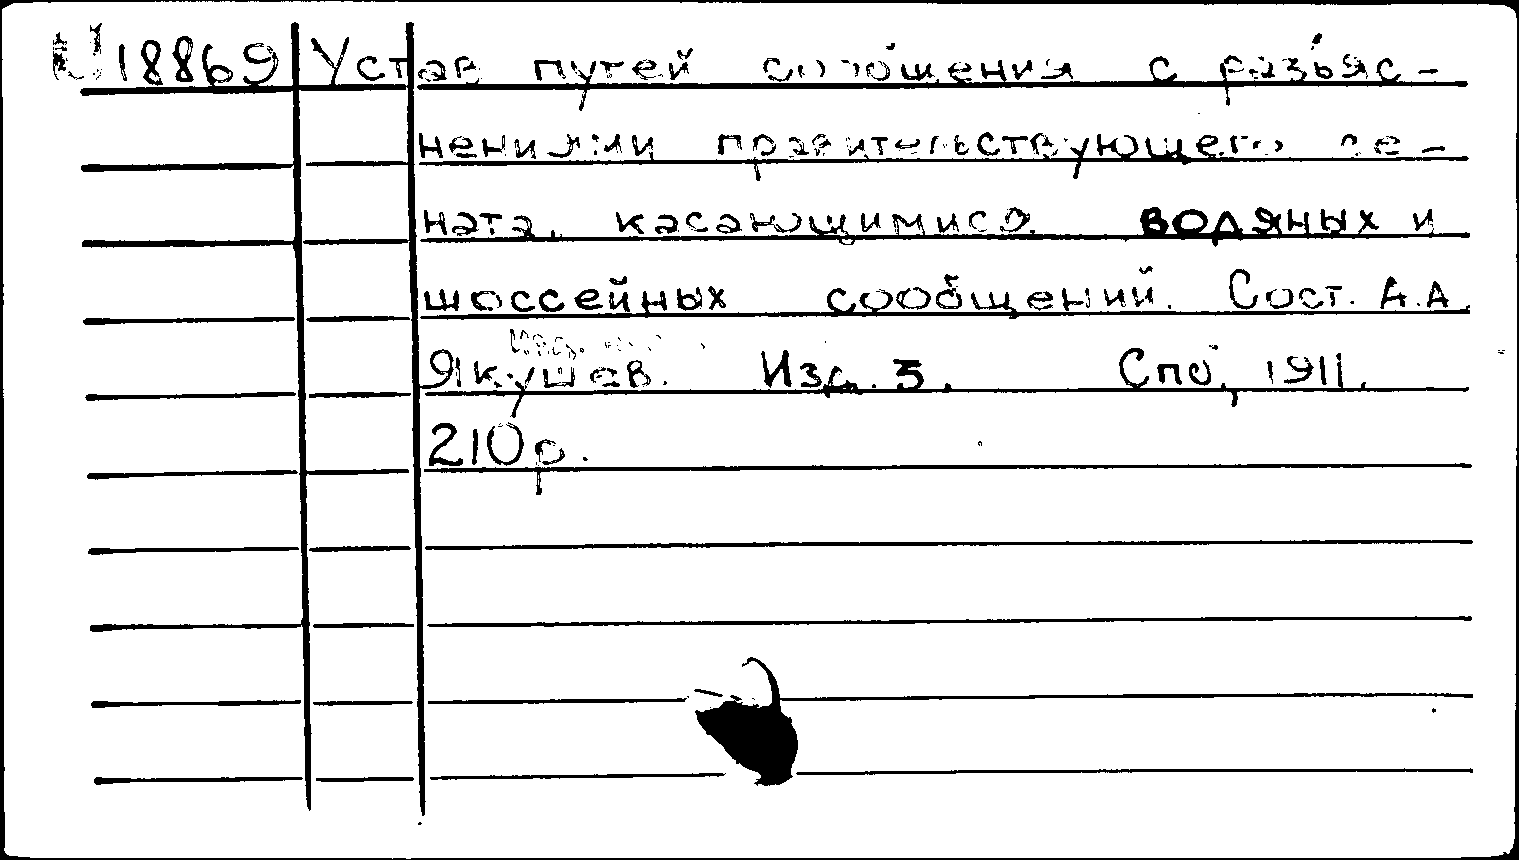 U18869 Устав путей сообщения с разъяс-
нениями правительствующего се-
ната, касающимися водяных и
шоссейных сообщений. Сост. А.А.
Изд.
Якушев. Изд. 3. Спб, 1911.
210 р.